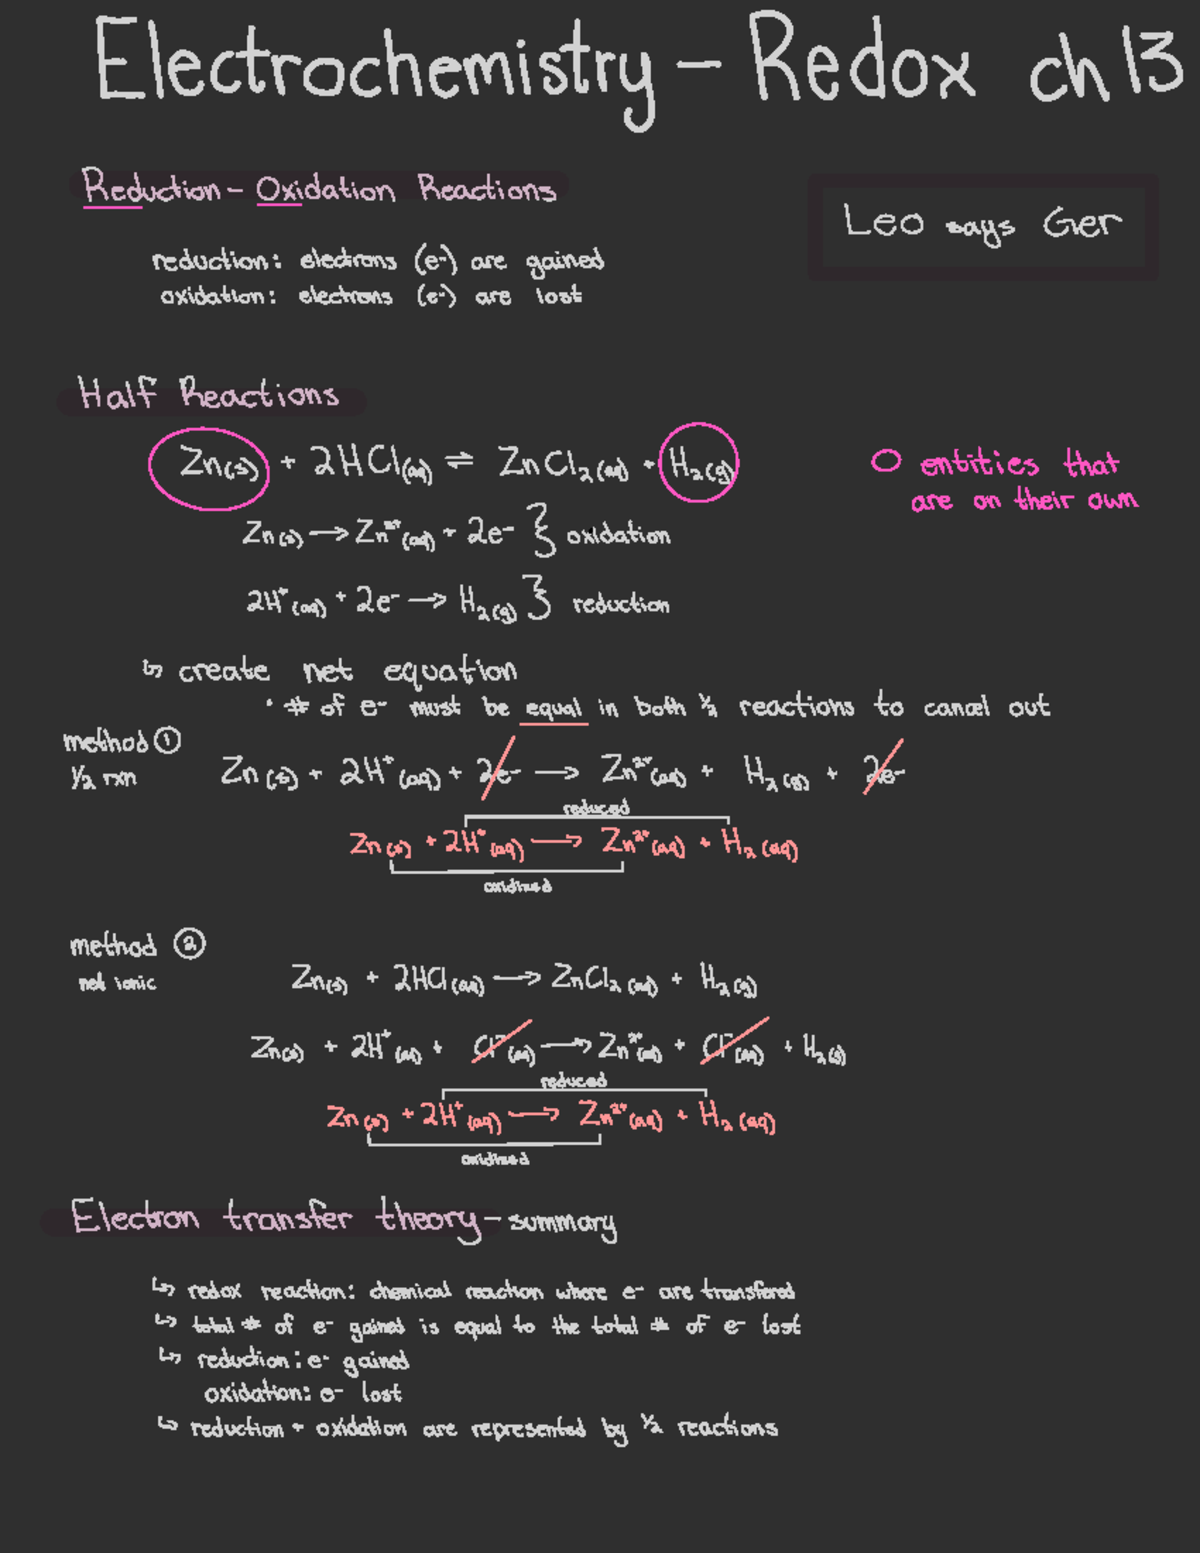 Electrochemistry - Redox ch 13
Reduction - Oxidation Reactions
Leo says Ger
reduction: electrons (e-) are gained
oxidation: electrons (e-) are lost
Half Reactions
Zn(s) + 2HCl(aq) ⇌ ZnCl₂(aq) + H₂(g)
O entities that
are on their own
Zn(s) → Zn²⁺(aq) + 2e- } oxidation
2H⁺(aq) + 2e- → H₂(g) } reduction
↳ create net equation
• # of e- must be equal in both ½ reactions to cancel out
method ①
½ rxn
Zn(s) + 2H⁺(aq) + 2e- → Zn²⁺(aq) + H₂(g) + 2e-
reduced
Zn(s) + 2H⁺(aq) → Zn²⁺(aq) + H₂(aq)
oxidized
method ②
net ionic
Zn(s) + 2HCl(aq) → ZnCl₂(aq) + H₂(g)
Zn(s) + 2H⁺(aq) + Cl⁻(aq) → Zn²⁺(aq) + Cl⁻(aq) + H₂(g)
reduced
Zn(s) + 2H⁺(aq) → Zn²⁺(aq) + H₂(aq)
oxidized
Electron transfer theory - summary
↳ redox reaction: chemical reaction where e- are transfered
↳ total # of e- gained is equal to the total # of e- lost
↳ reduction: e- gained
oxidation: e- lost
↳ reduction + oxidation are represented by ½ reactions